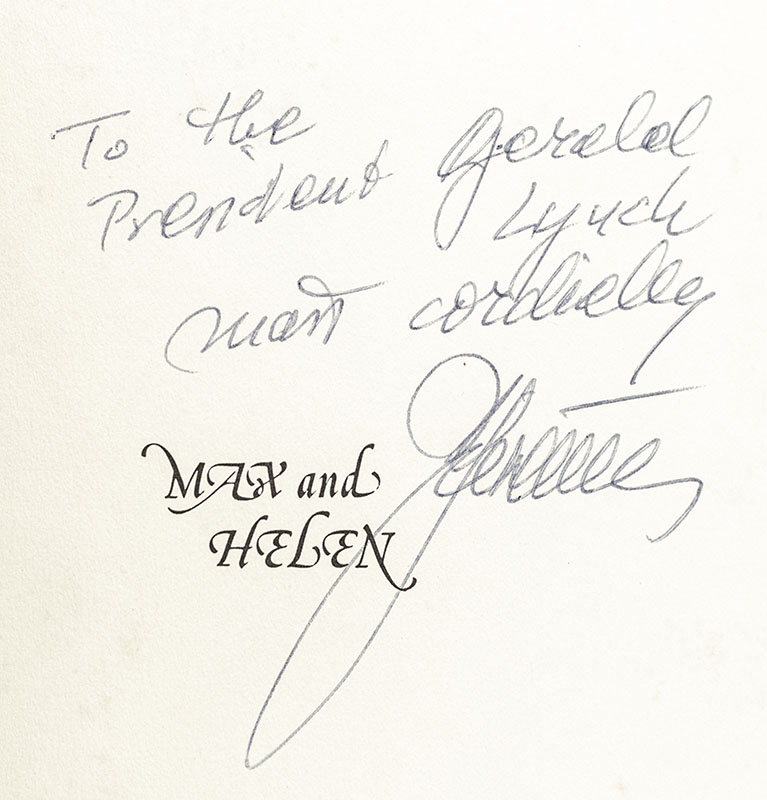 To the
President Gerald
Lynch
most cordially
MAX and
HELEN